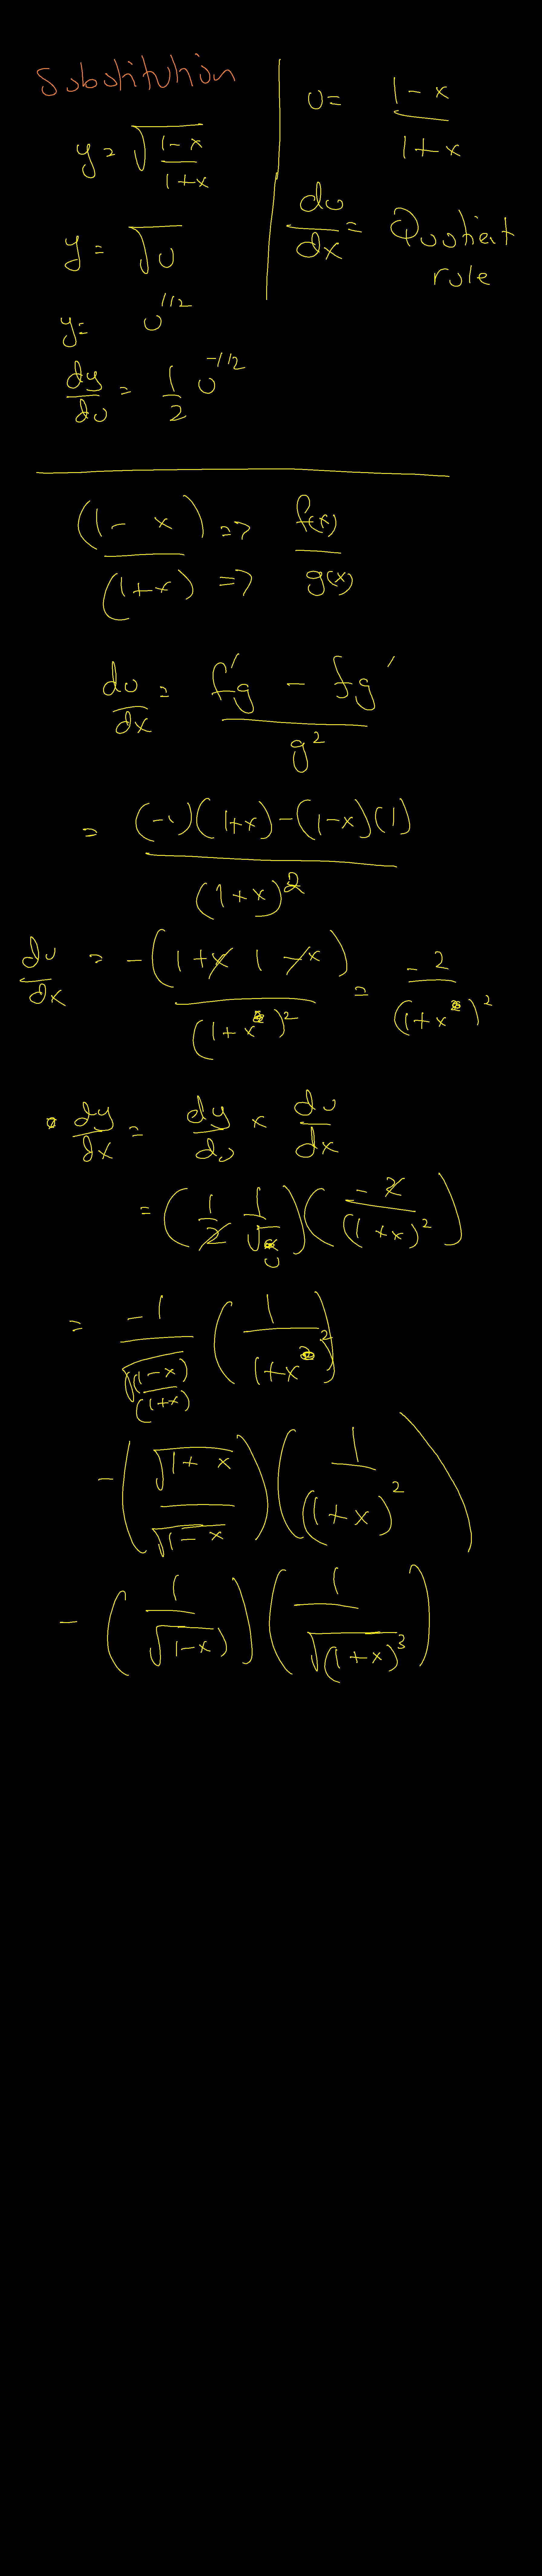 Substitution
y = √((1-x)/(1+x))
y = √u
y = u^1/2
dy/du = 1/2 u^-1/2
u = (1-x)/(1+x)
du/dx = Quotient
rule
(1-x)/(1+x) => => f(x)/g(x)
du/dx = (f'g - fg')/g²
= ((-1)(1+x)-(1-x)(1))/(1+x)²
du/dx = -(1+x 1-x)/(1+x)² = -2/(1+x)²
dy/dx = dy/du × du/dx
= (1/2 1/√u)(-2/(1+x)²)
= -1/√((1-x)/(1+x)) (1/(1+x)²)
-(√(1+x)/√(1-x))(1/(1+x)²)
-(1/√(1-x))(1/√((1+x)³))